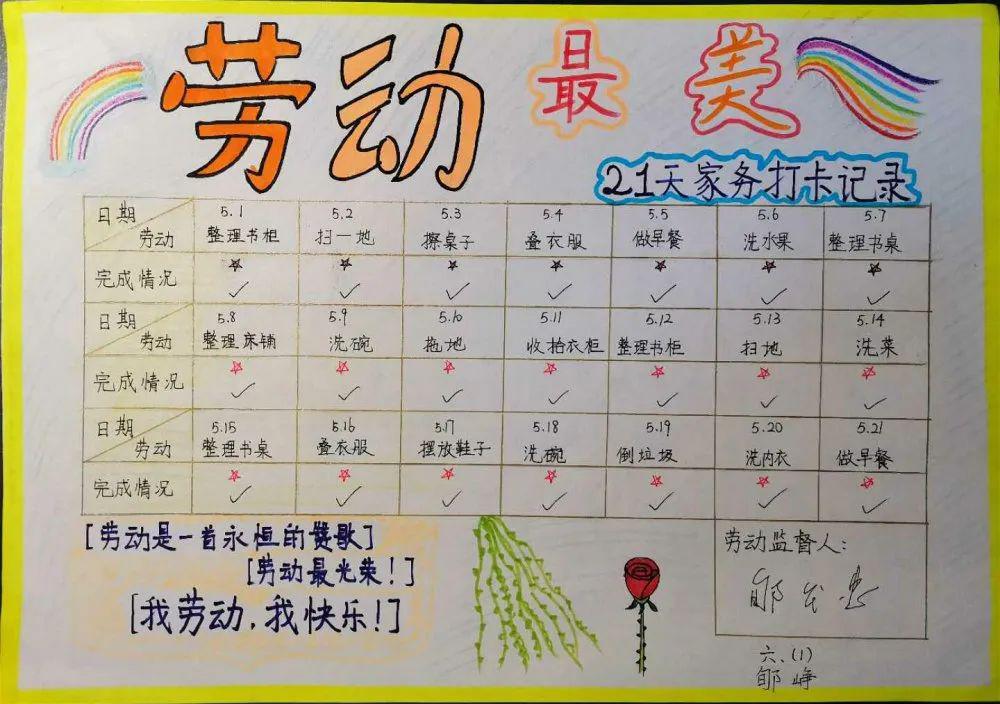 劳动最美
21天家务打卡记录
日期 5.1 5.2 5.3 5.4 5.5 5.6 5.7
劳动 整理书柜 扫一地 擦桌子 叠衣服 做早餐 洗水果 整理书桌
完成情况
日期 5.8 5.9 5.10 5.11 5.12 5.13 5.14
劳动 整理床铺 洗碗 拖地 收拾衣柜 整理书柜 扫地 洗菜
完成情况
日期 5.15 5.16 5.17 5.18 5.19 5.20 5.21
劳动 整理书桌 叠衣服 摆放鞋子 洗碗 倒垃圾 洗内衣 做早餐
完成情况
[劳动是一首永恒的赞歌]
[劳动最光荣!]
[我劳动,我快乐!]
劳动监督人:
六、(1)
郇峥